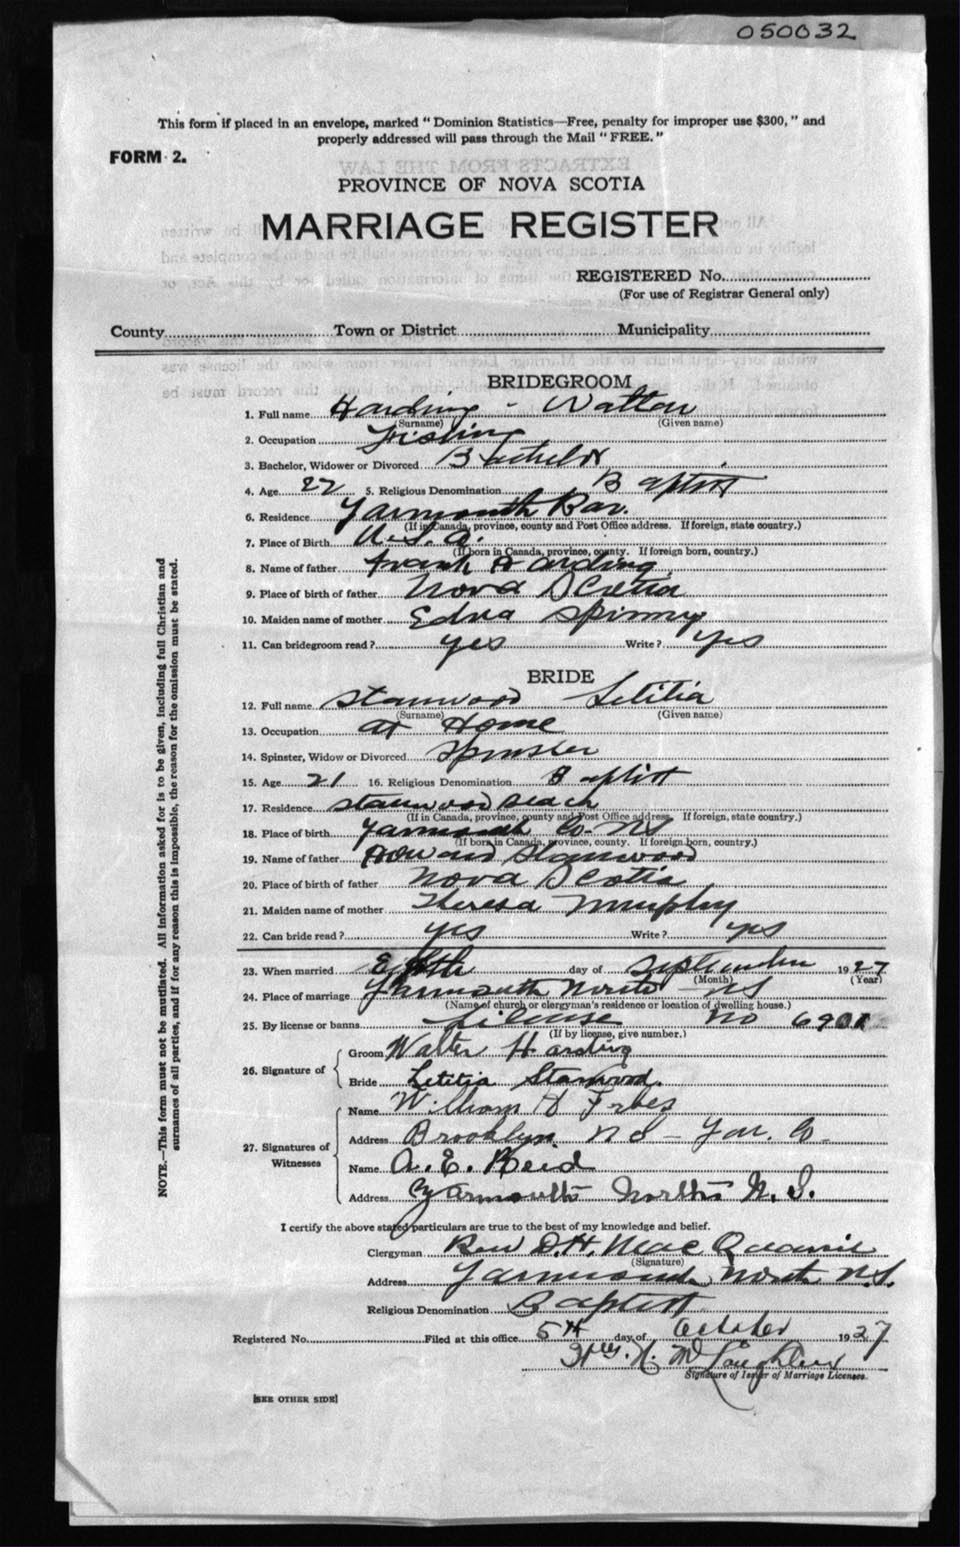 050032
This form if placed in an envelope, marked “ Dominion Statistics—Free, penalty for improper use $300, ” and
properly addressed will pass through the Mail “ FREE. ”
FORM 2.
EXTRACTS FROM THE LAW
PROVINCE OF NOVA SCOTIA
MARRIAGE REGISTER
REGISTERED No.
(For use of Registrar General only)
County Town or District Municipality
BRIDEGROOM
1. Full name Harding - Walter
(Surname) (Given name)
2. Occupation Fishing
3. Bachelor, Widower or Divorced Bachelor
4. Age 22 5. Religious Denomination Baptist
6. Residence Yarmouth Bar.
(If in Canada, province, county and Post Office address. If foreign, state country.)
7. Place of Birth U.S.A.
(If born in Canada, province, county. If foreign born, country.)
8. Name of father Frank Harding
9. Place of birth of father Nova Scotia
10. Maiden name of mother Edna Spinny
11. Can bridegroom read? yes Write? yes
BRIDE
12. Full name Stanwood Letitia
(Surname) (Given name)
13. Occupation at Home
14. Spinster, Widow or Divorced Spinster
15. Age 21 16. Religious Denomination Baptist
17. Residence Stanwood Beach
(If in Canada, province, county and Post Office address. If foreign, state country.)
18. Place of birth Yarmouth Co- NS
(If born in Canada, province, county. If foreign born, country.)
19. Name of father Howard Stanwood
20. Place of birth of father Nova Scotia
21. Maiden name of mother Theresa Murphy
22. Can bride read? yes Write? yes
23. When married day of September 1927
(Month) (Year)
24. Place of marriage Yarmouth North - NS
(Name of church or clergyman's residence or location of dwelling house.)
25. By license or banns License No
(If by license, give number.)
26. Signature of
Groom Walter Harding
Bride Letitia Stanwood.
27. Signatures of Witnesses
Name William H Forbes
Address Brooklyn NS - Yar. Co-
Name A. E. Reid
Address Yarmouth North N. S.
I certify the above stated particulars are true to the best of my knowledge and belief.
Clergyman Rev D.H. MacQuarrie
(Signature)
Address Yarmouth North N.S.
Religious Denomination Baptist
Registered No. Filed at this office 5th day of October 1927
McLaughlin
Signature of Issuer of Marriage Licenses.
[SEE OTHER SIDE]
NOTE.—This form must not be mutilated. All information asked for is to be given, including full Christian and
surnames of all parties, and if for any reason this is impossible, the reason for the omission must be stated.